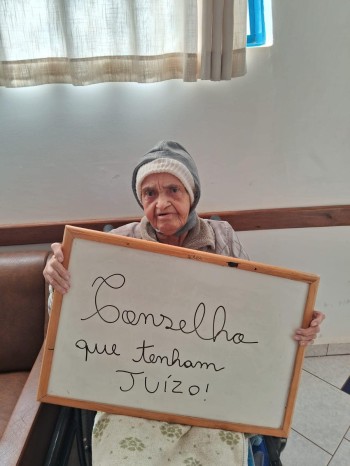 Conselho
que tenham
JUÍZO!